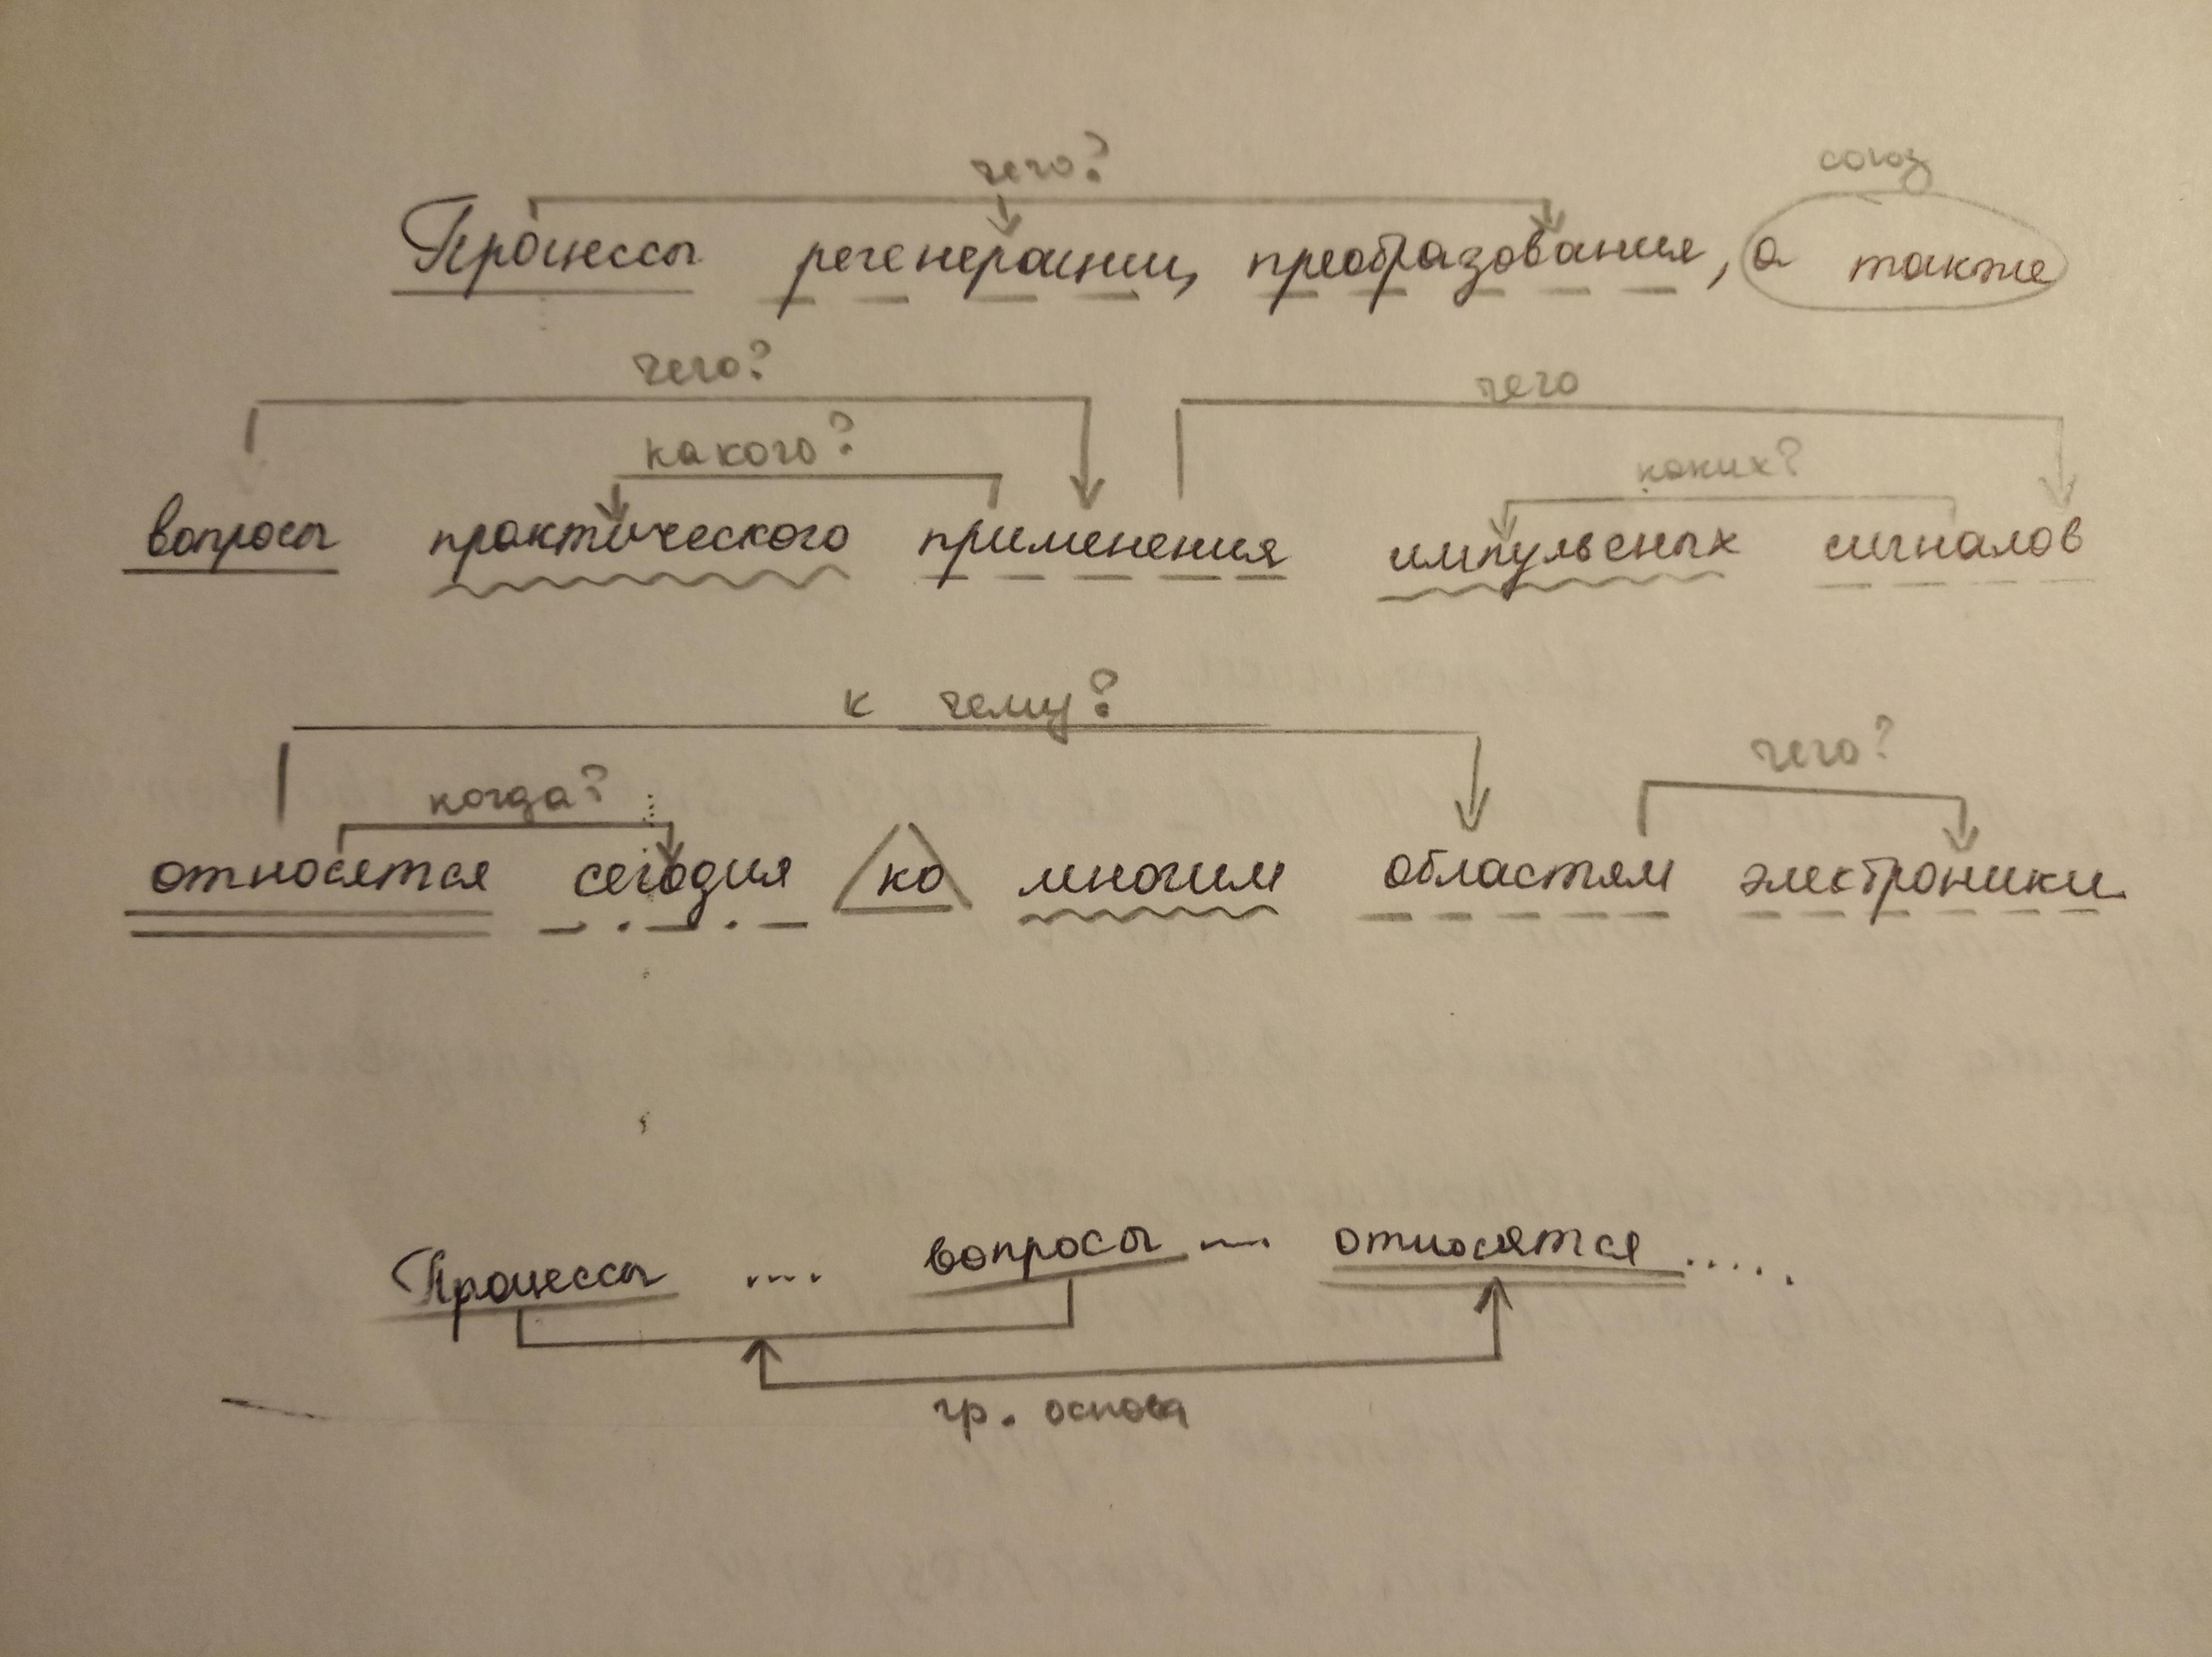 чего? союз
Процессы регенерации, преобразования, а также
чего? чего
какого? каких?
вопросы практического применения импульсных сигналов
к чему?
чего?
когда?
относятся сегодня ко многим областям электроники
Процессы .... вопросы .... относятся .....
гр. основа